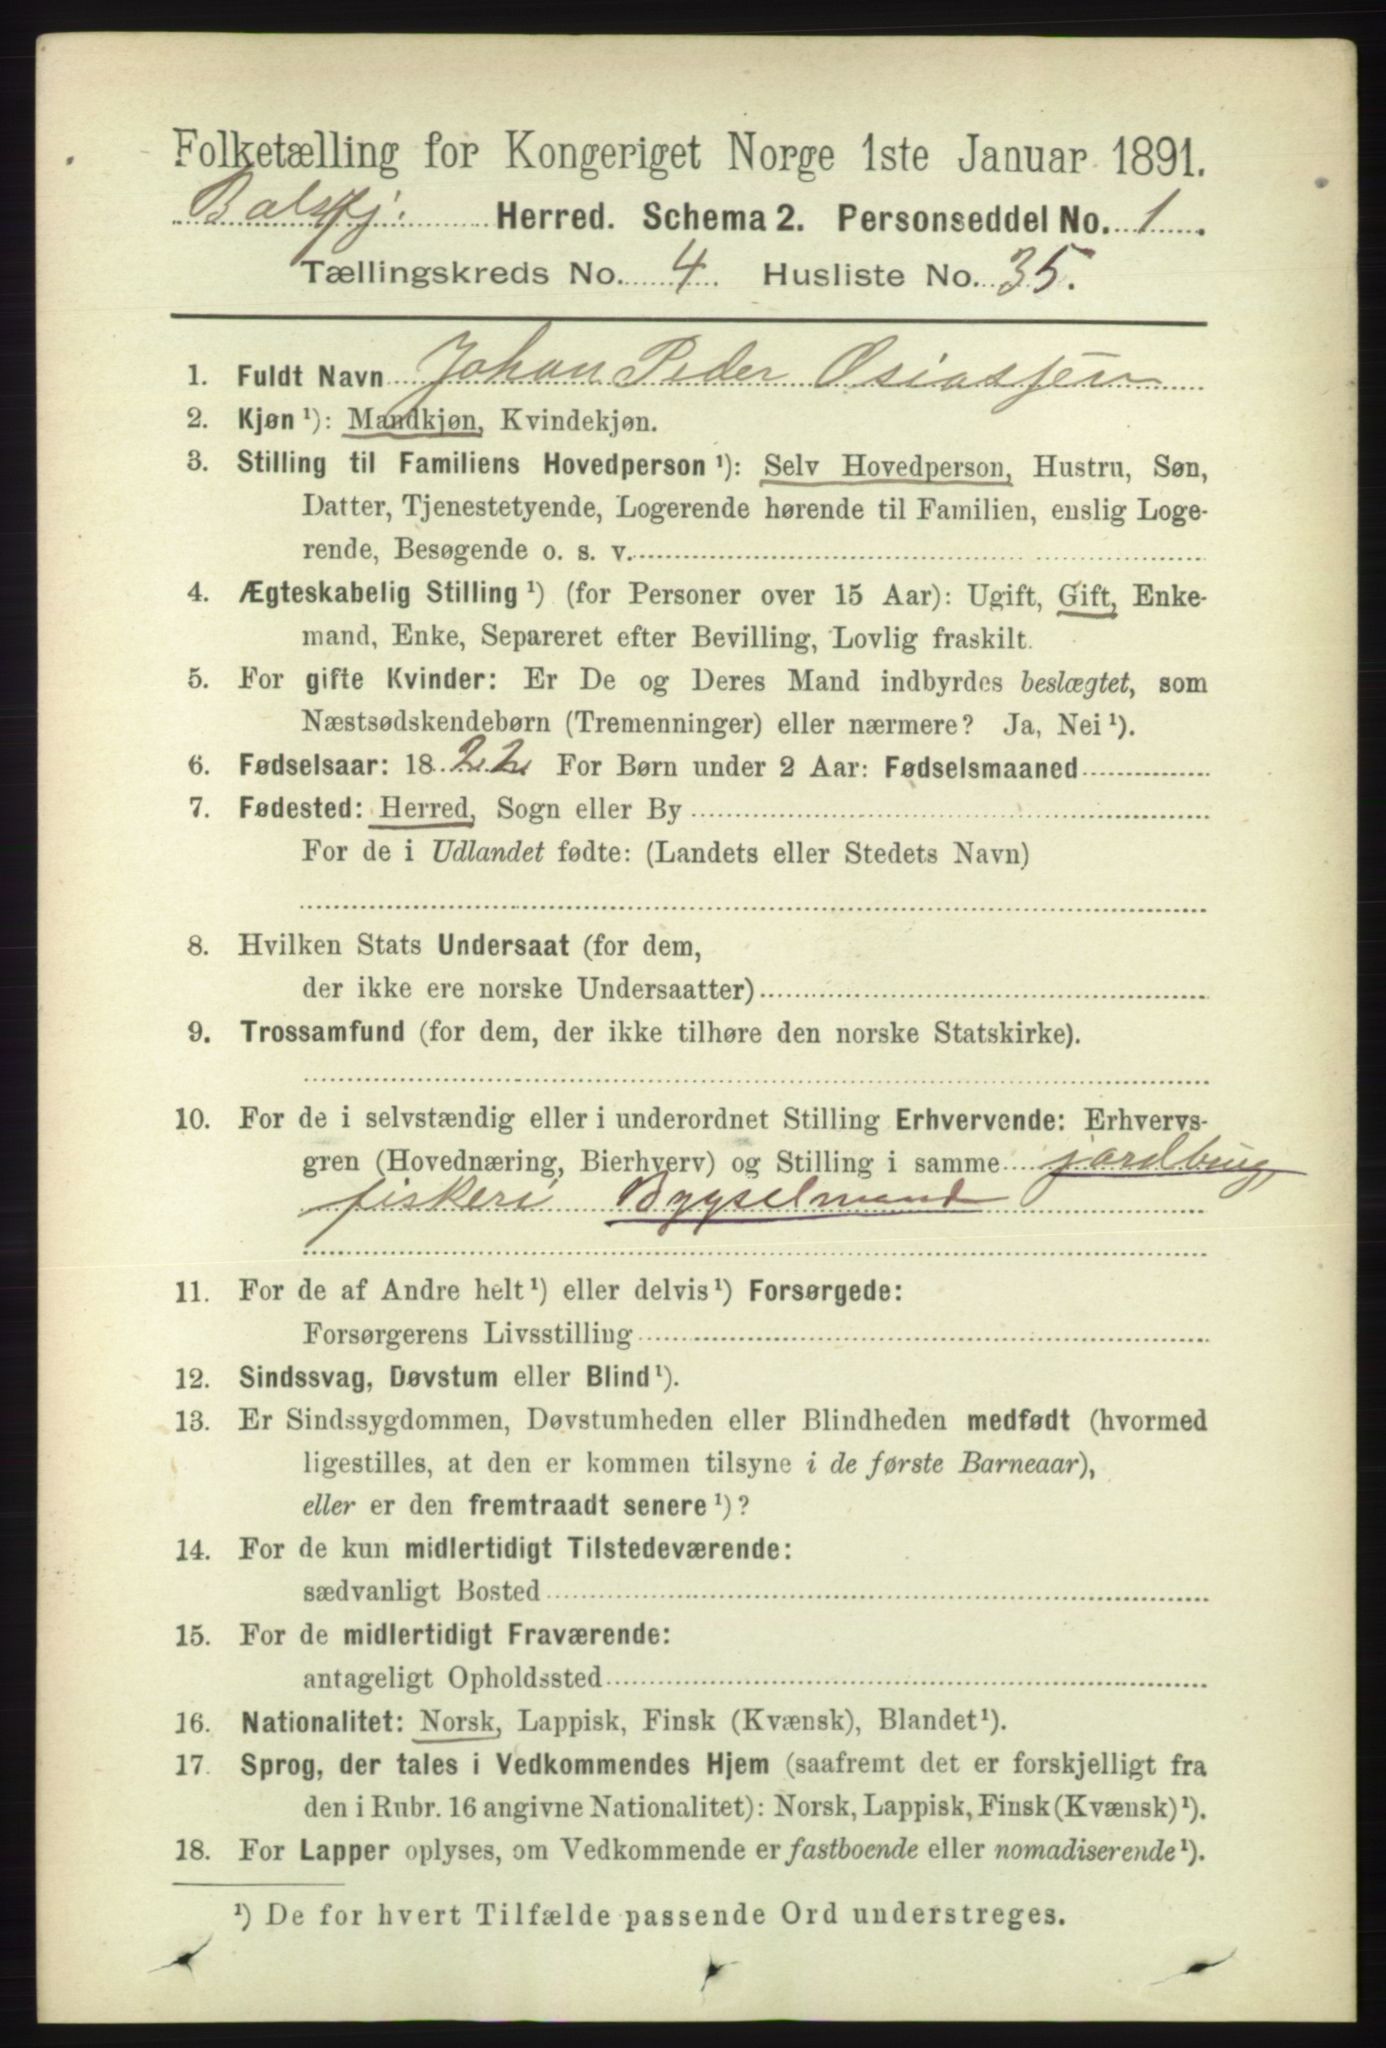 Folketælling for Kongeriget Norge 1ste Januar 1891.
Balsfj. Herred. Schema 2. Personseddel No. 1.
Tællingskreds No. 4. Husliste No. 35.
1. Fuldt Navn Johan Peder Osiassen
2. Kjøn ¹): Mandkjøn, Kvindekjøn.
3. Stilling til Familiens Hovedperson ¹): Selv Hovedperson, Hustru, Søn,
Datter, Tjenestetyende, Logerende hørende til Familien, enslig Loge-
rende, Besøgende o. s. v.
4. Ægteskabelig Stilling ¹) (for Personer over 15 Aar): Ugift, Gift, Enke-
mand, Enke, Separeret efter Bevilling, Lovlig fraskilt.
5. For gifte Kvinder: Er De og Deres Mand indbyrdes beslægtet, som
Næstsødskendebørn (Tremenninger) eller nærmere? Ja, Nei ¹).
6. Fødselsaar: 1822 For Børn under 2 Aar: Fødselsmaaned
7. Fødested: Herred, Sogn eller By
For de i Udlandet fødte: (Landets eller Stedets Navn)
8. Hvilken Stats Undersaat (for dem,
der ikke ere norske Undersaatter)
9. Trossamfund (for dem, der ikke tilhøre den norske Statskirke).
10. For de i selvstændig eller i underordnet Stilling Erhvervende: Erhvervs-
gren (Hovednæring, Bierhverv) og Stilling i samme jordbrug,
fiskeri Bygselmand
11. For de af Andre helt ¹) eller delvis ¹) Forsørgede:
Forsørgerens Livsstilling
12. Sindssvag, Døvstum eller Blind ¹).
13. Er Sindssygdommen, Døvstumheden eller Blindheden medfødt (hvormed
ligestilles, at den er kommen tilsyne i de første Barneaar),
eller er den fremtraadt senere ¹)?
14. For de kun midlertidigt Tilstedeværende:
sædvanligt Bosted
15. For de midlertidigt Fraværende:
antageligt Opholdssted
16. Nationalitet: Norsk, Lappisk, Finsk (Kvænsk), Blandet ¹).
17. Sprog, der tales i Vedkommendes Hjem (saafremt det er forskjelligt fra
den i Rubr. 16 angivne Nationalitet): Norsk, Lappisk, Finsk (Kvænsk) ¹).
18. For Lapper oplyses, om Vedkommende er fastboende eller nomadiserende ¹).
¹) De for hvert Tilfælde passende Ord understreges.